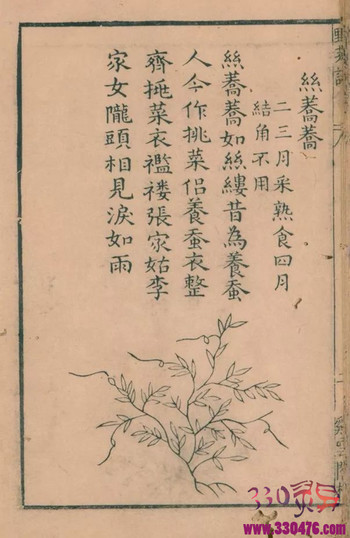 絲蕎蕎
二三月采熟食四月
結角不用
絲蕎蕎如絲縷昔為養蚕
人今作挑菜侣養蚕衣整
齊挑菜衣襤褸張家姑李
家女隴頭相見淚如雨
330
www.330476.com